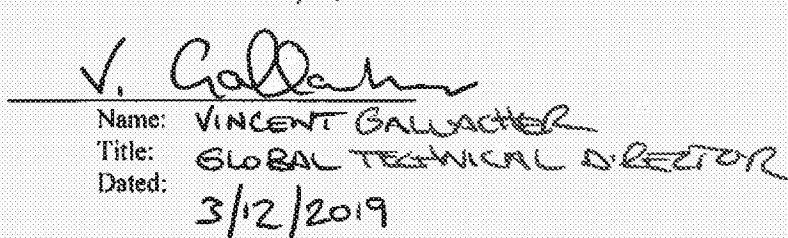 V. Gallacher
Name: VINCENT GALLACHER
Title: GLOBAL TECHNICAL DIRECTOR
Dated:
3/12/2019